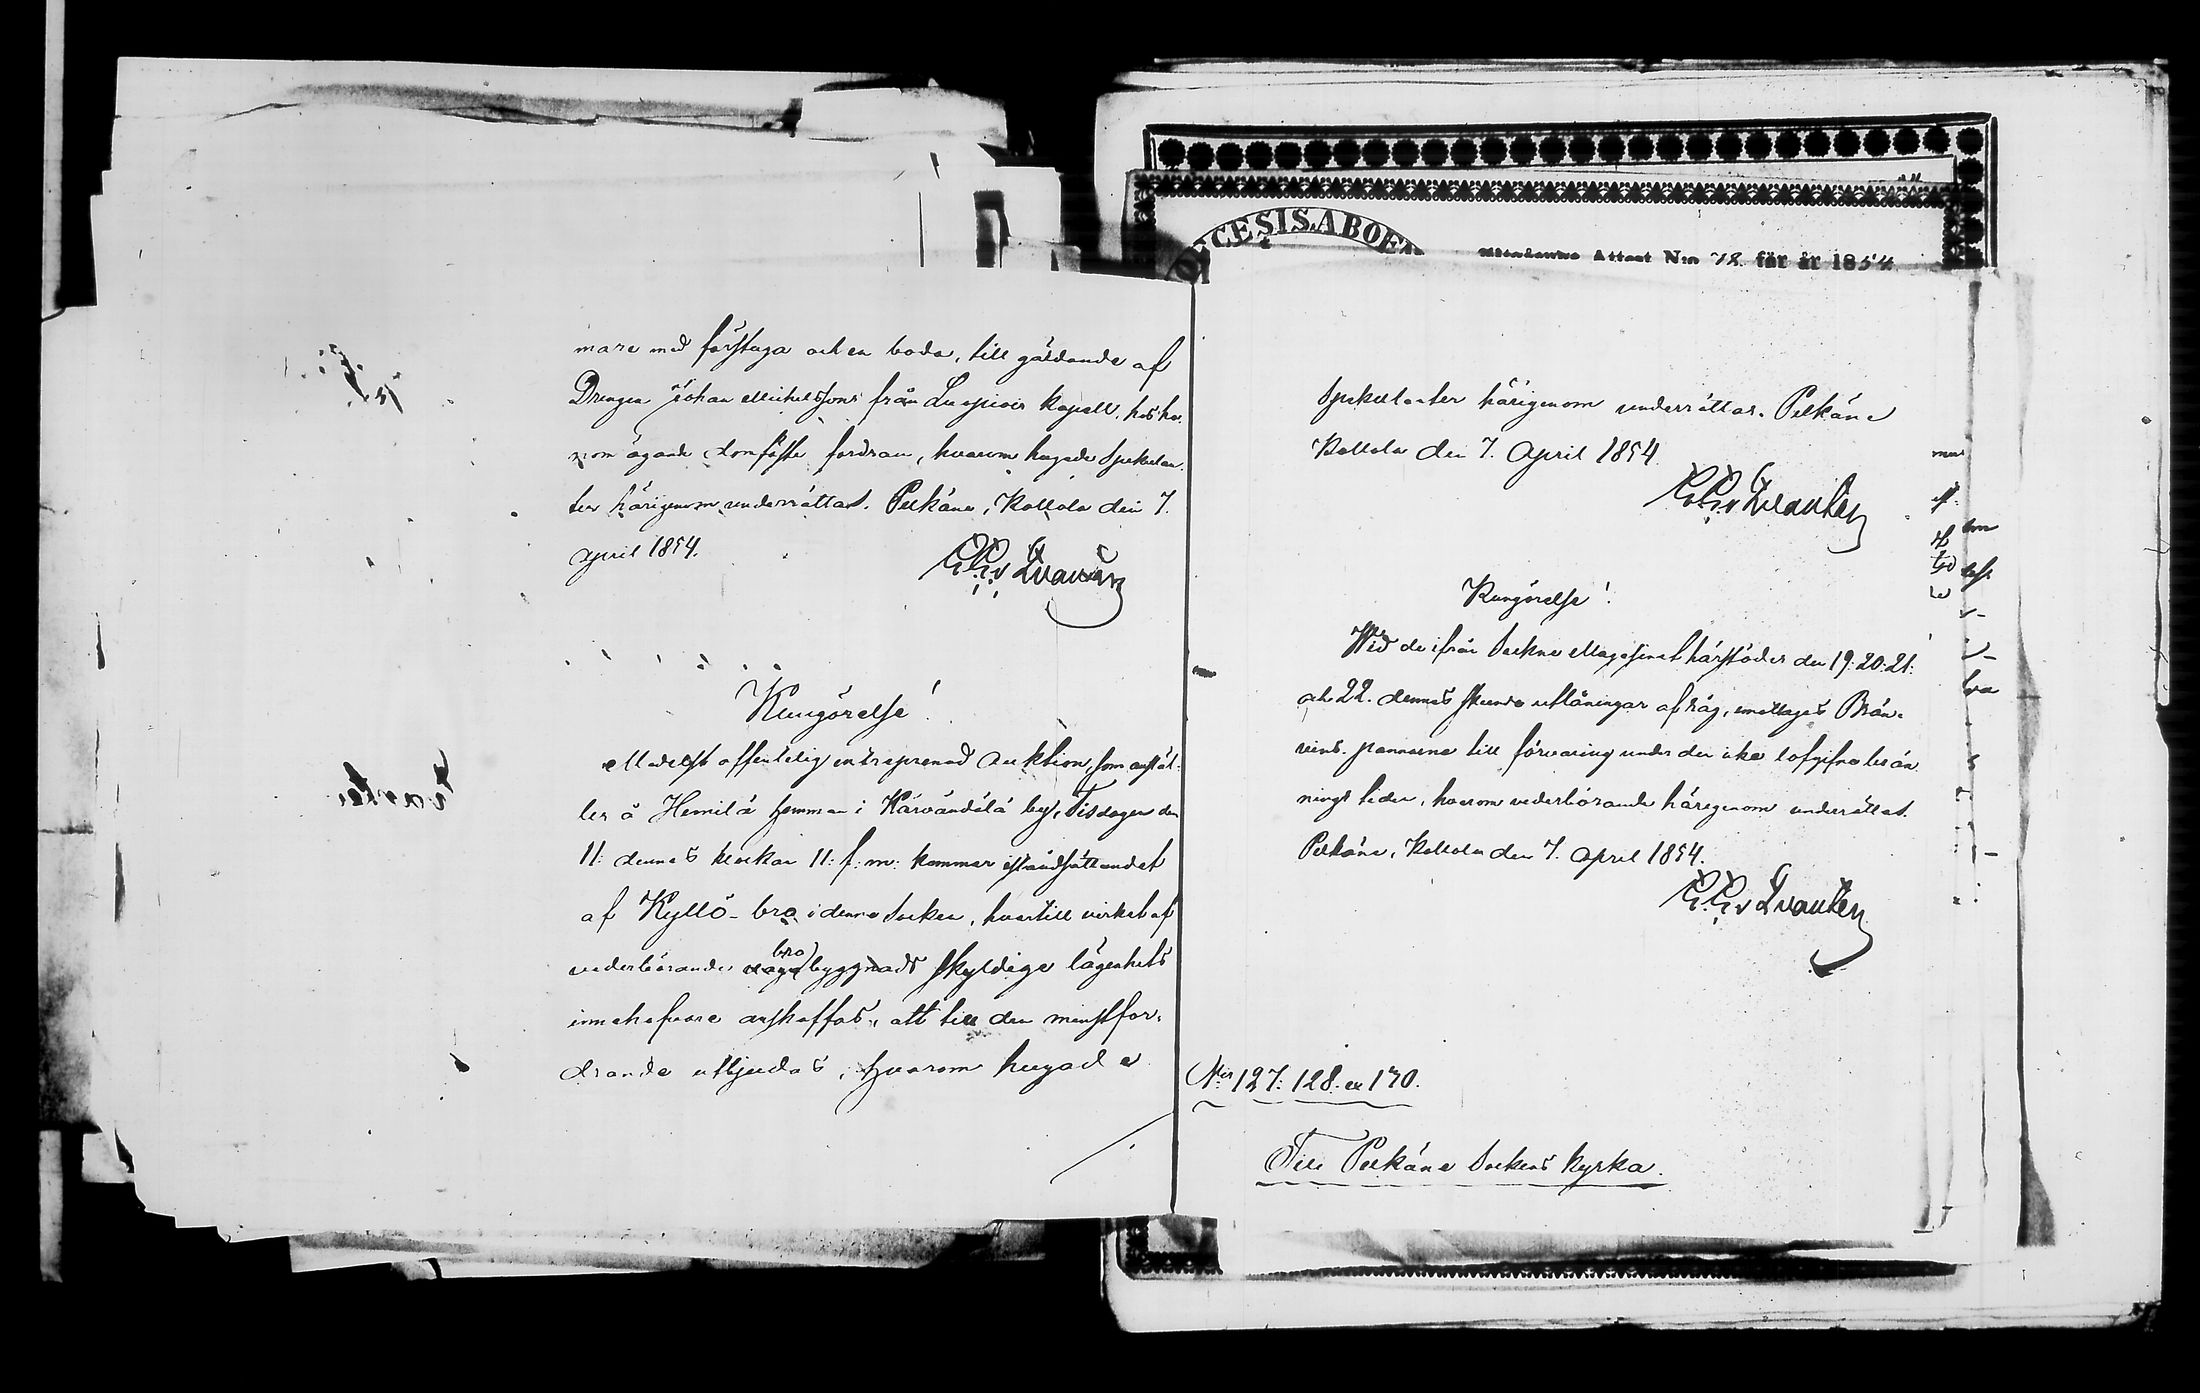 mare med förstuga och en boda, till gäldande af
Drengen Johan Michelssons från Luopiois Kapell, hos ho-
nom ägande domfäste fordran, hvarom hugade Spekulan-
ter härigenom underrättas. Pelkäne, Kollola den 7.
April 1854.
Kungörelse!
Medelst offentelig entreprenad Auktion, som anstäl-
les å Hemilä hemman i Kärvändälä by, Tisdagen den
11: dennes klockan 11: f: m: kommer iståndsättandet
af Kyllö-bro i denna Socken, hvartill virket af
vederbörande bro byggnads skyldige lägenhets
innehafvare anskaffas, att till den minstfor-
drande utbjudas, hvarom hugade
DIŒCESIS ABOEN
Attest N:o 78 för år 1854
Spekulanter härigenom underrättas. Pelkäne
Kollola den 7. April 1854.
Kungörelse!
Wid de ifrån Sockne Magasinet härstädes den 19: 20: 21:
och 22. dennes skeende utlåningar af råg, emottages Brän-
vins-pannorne till förvaring under den icke lofgifna brän-
nings tiden, hvarom vederbörande härigenom underrättas.
Pelkäne, Kollola den 7. April 1854.
N:is 127: 128. & 170.
Till Pelkäne Sockens kyrka.